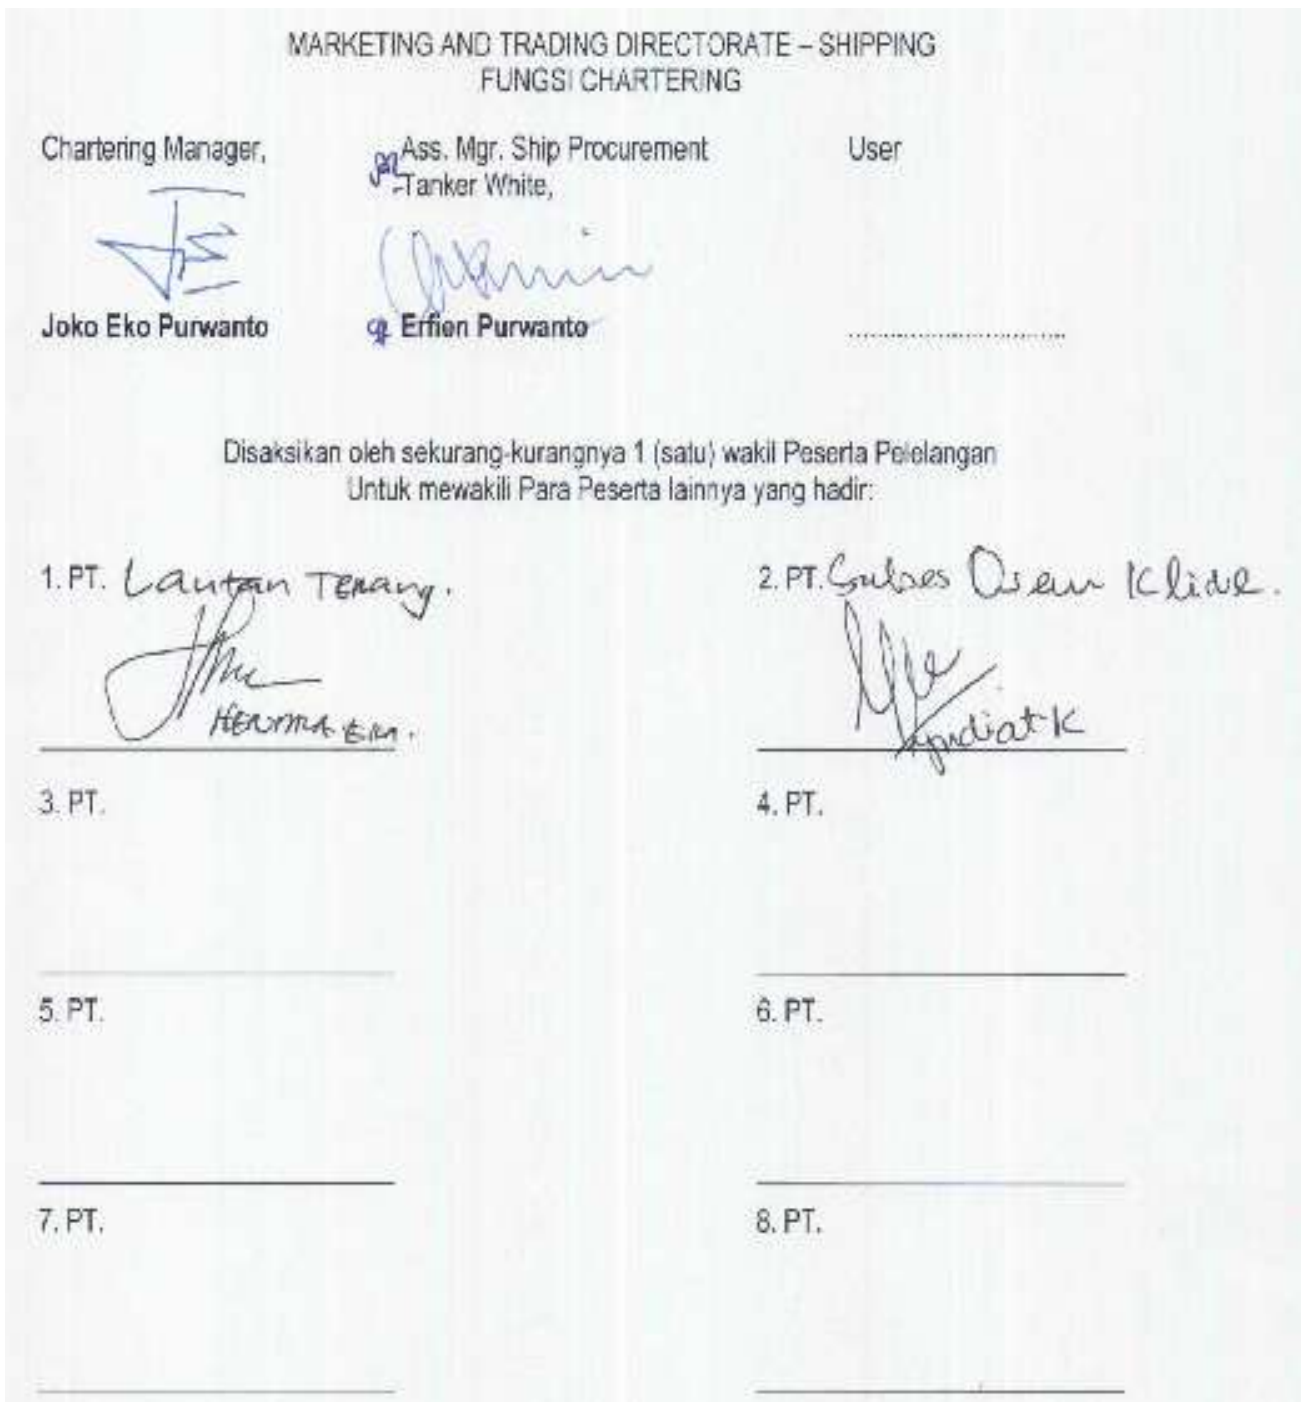 MARKETING AND TRADING DIRECTORATE – SHIPPING
FUNGSI CHARTERING
Chartering Manager,
Ass. Mgr. Ship Procurement
-Tanker White,
User
Joko Eko Purwanto
Erfien Purwanto
........................
Disaksikan oleh sekurang-kurangnya 1 (satu) wakil Peserta Pelelangan
Untuk mewakili Para Peserta lainnya yang hadir:
1. PT. Lautan Tenang.
2. PT. Sukses
3. PT.
4. PT.
5. PT.
6. PT.
7. PT.
8. PT.